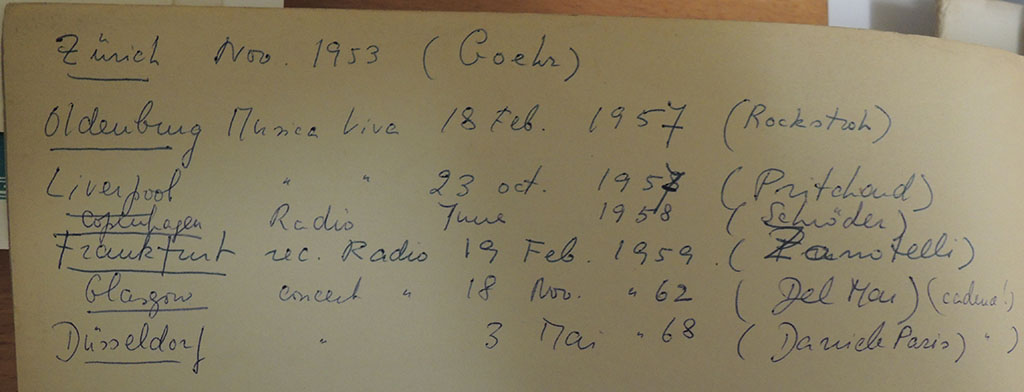 Zürich Nov. 1953 (Goehr)
Oldenburg Musica Viva 18 Feb. 1957 (Rockstroh)
Liverpool " " 23 oct. 1957 (Pritchard)
Copenhagen Radio June 1958 (Schröder)
Frankfurt rec. Radio 19 Feb. 1959. (Zanotelli)
Glasgow concert " 18 Nov. " 62 (Del Mar) (cadenz!)
Düsseldorf " 3 Mai " 68 (Daniele Paris) " )